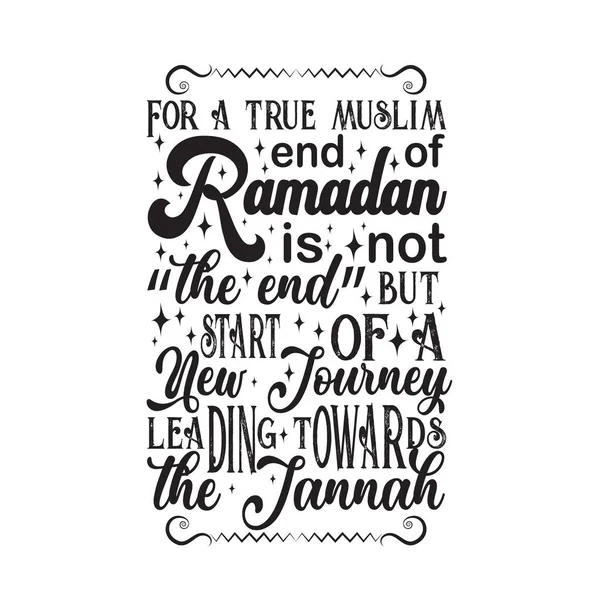 FOR A TRUE MUSLIM
end of
Ramadan
is not
"the end" BUT
START OF A
New Journey
LEADING TOWARDS
the Jannah